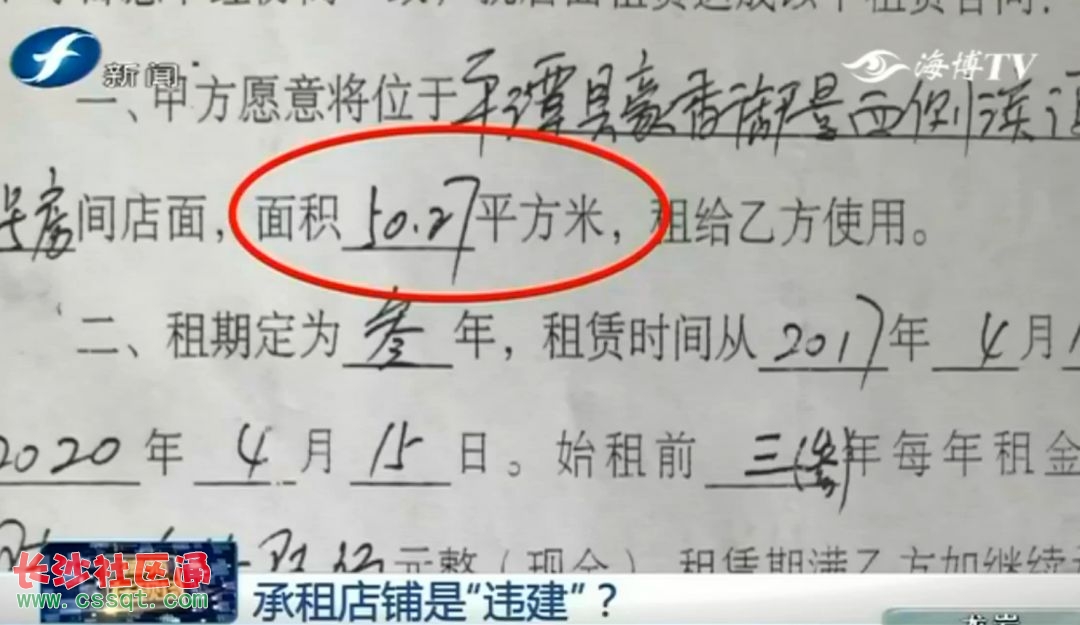 新闻
海博TV
一、甲方愿意将位于平潭县豪香御景西侧
号房间店面，面积50.27平方米，租给乙方使用。
二、租期定为叁年，租赁时间从2017年4月
2020年4月15日。始租前三(叁)年每年租金
元整（现金）。租赁期满乙方如继续
长沙社区通
www.cssqt.com
承租店铺是“违建”？